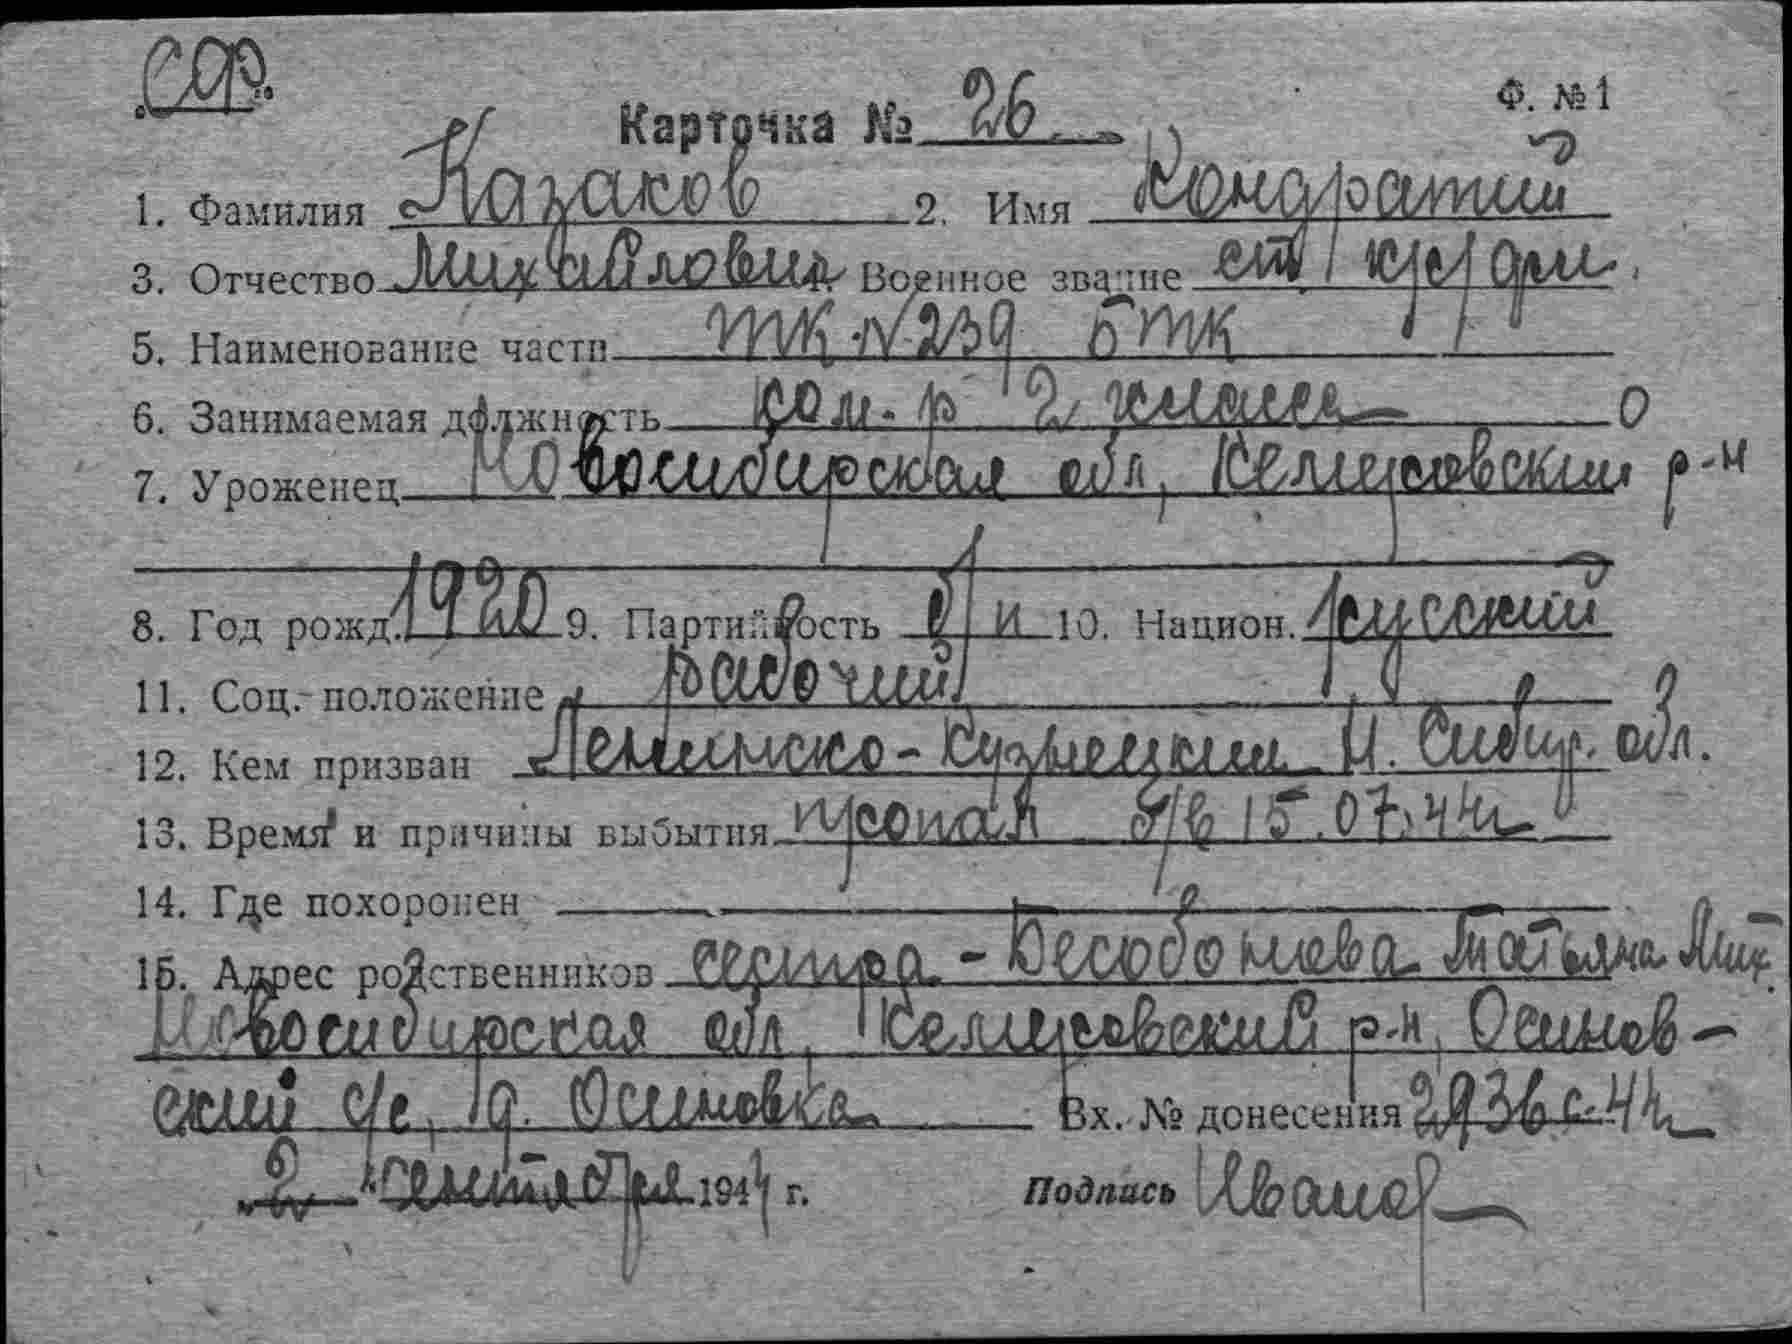 СФ.
Карточка № 26 Ф. №1
1. Фамилия Казаков 2. Имя Кондратий
3. Отчество Михайлович Военное звание ст/кр/фл.
5. Наименование части ТК №239 БТК
6. Занимаемая должность ком-р 2 класса О
7. Уроженец Новосибирская обл, Кемеровский р-н
8. Год рожд. 1920 9. Партийность б/п 10. Национ. русский
11. Соц.-положение рабочий
12. Кем призван Ленинско-Кузнецким Н. Сибир. обл.
13. Время и причины выбытия пропал б/в 15.07.44г
14. Где похоронен
15. Адрес родственников сестра - Татьяна Мих.
Новосибирская обл, Кемеровский р-н, Осинов-
ский с/с, д. Осиновка Вх. № донесения 2936с-44г
2 "сентября 1944 г. Подпись Иванов